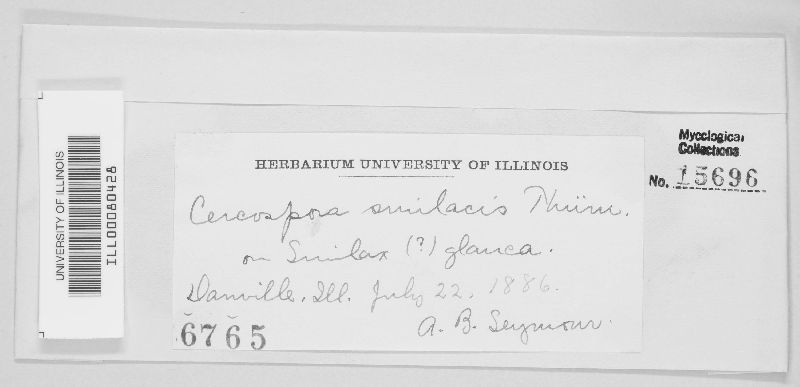 HERBARIUM UNIVERSITY OF ILLINOIS
Cercospora smilacis Thüm.
on Smilax (?) glauca.
Danville, Ill. July 22, 1886.
A. B. Seymour.
6765
UNIVERSITY OF ILLINOIS
ILL00080428
Mycological
Collections
No. 15696